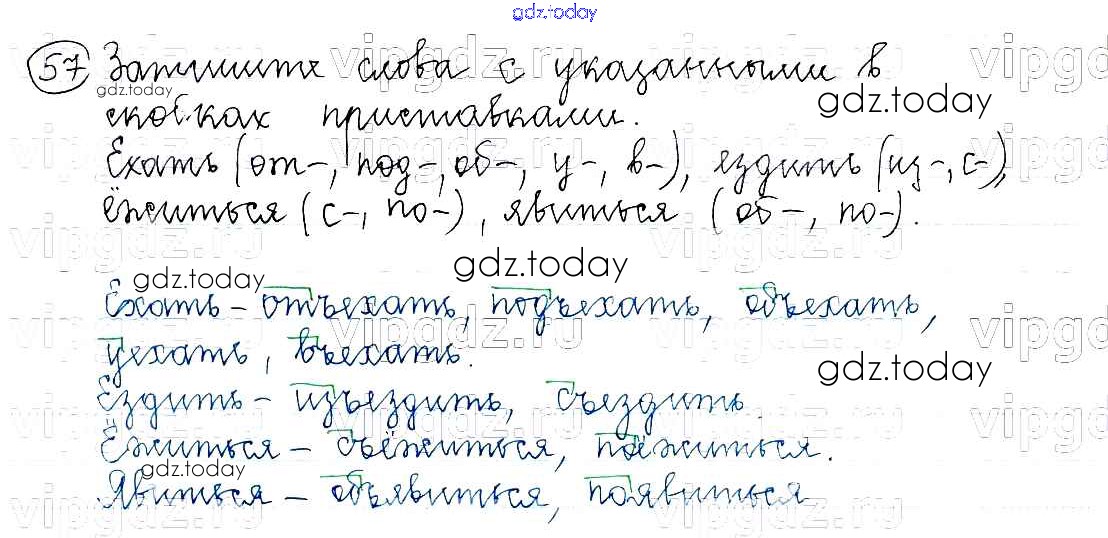 gdz.today
57 Запишите слова с указанными в
скобках приставками.
Ехать (от-, под-, об-, у-, в-), ездить (из-, с-),
ёжиться (с-, по-), явиться (об-, по-).
Ехать - отъехать, подъехать, объехать,
уехать, въехать.
Ездить - изъездить, съездить.
Ёжиться - съёжиться, поёжиться.
Явиться - объявиться, появиться
gdz.today
gdz.today
gdz.today
gdz.today
gdz.today
gdz.today
vipgdz.ru
vipgdz.ru
vipgdz.ru
vipgdz.ru
vipgdz.ru